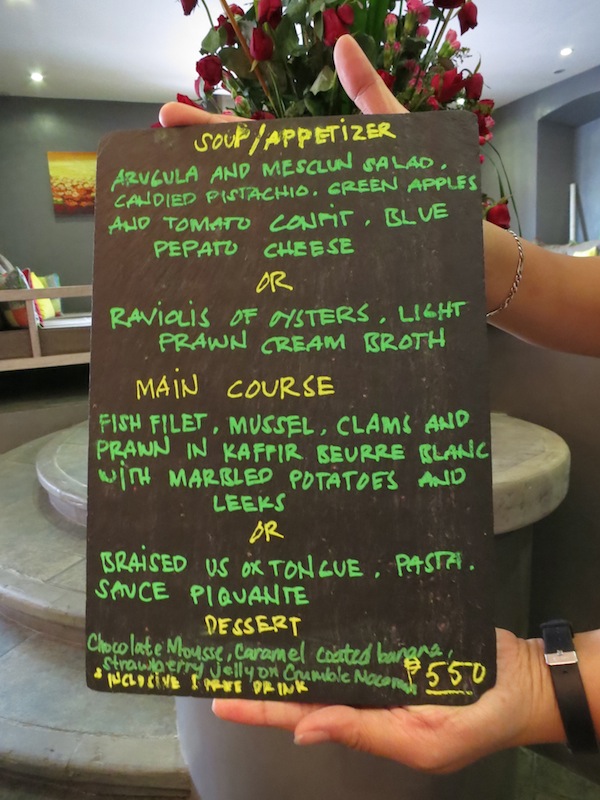 SOUP/APPETIZER
ARUGULA AND MESCLUN SALAD.
CANDIED PISTACHIO. GREEN APPLES
AND TOMATO CONFIT. BLUE
PEPATO CHEESE
OR
RAVIOLIS OF OYSTERS. LIGHT
PRAWN CREAM BROTH
MAIN COURSE
FISH FILET, MUSSEL, CLAMS AND
PRAWN IN KAFFIR BEURRE BLANC
WITH MARBLED POTATOES AND
LEEKS
OR
BRAISED US OXTONGUE. PASTA.
SAUCE PIQUANTE
DESSERT
Chocolate Mousse, Caramel coated banana,
strawberry jelly on Crumble
₱550
INCLUSIVE 1 FREE DRINK